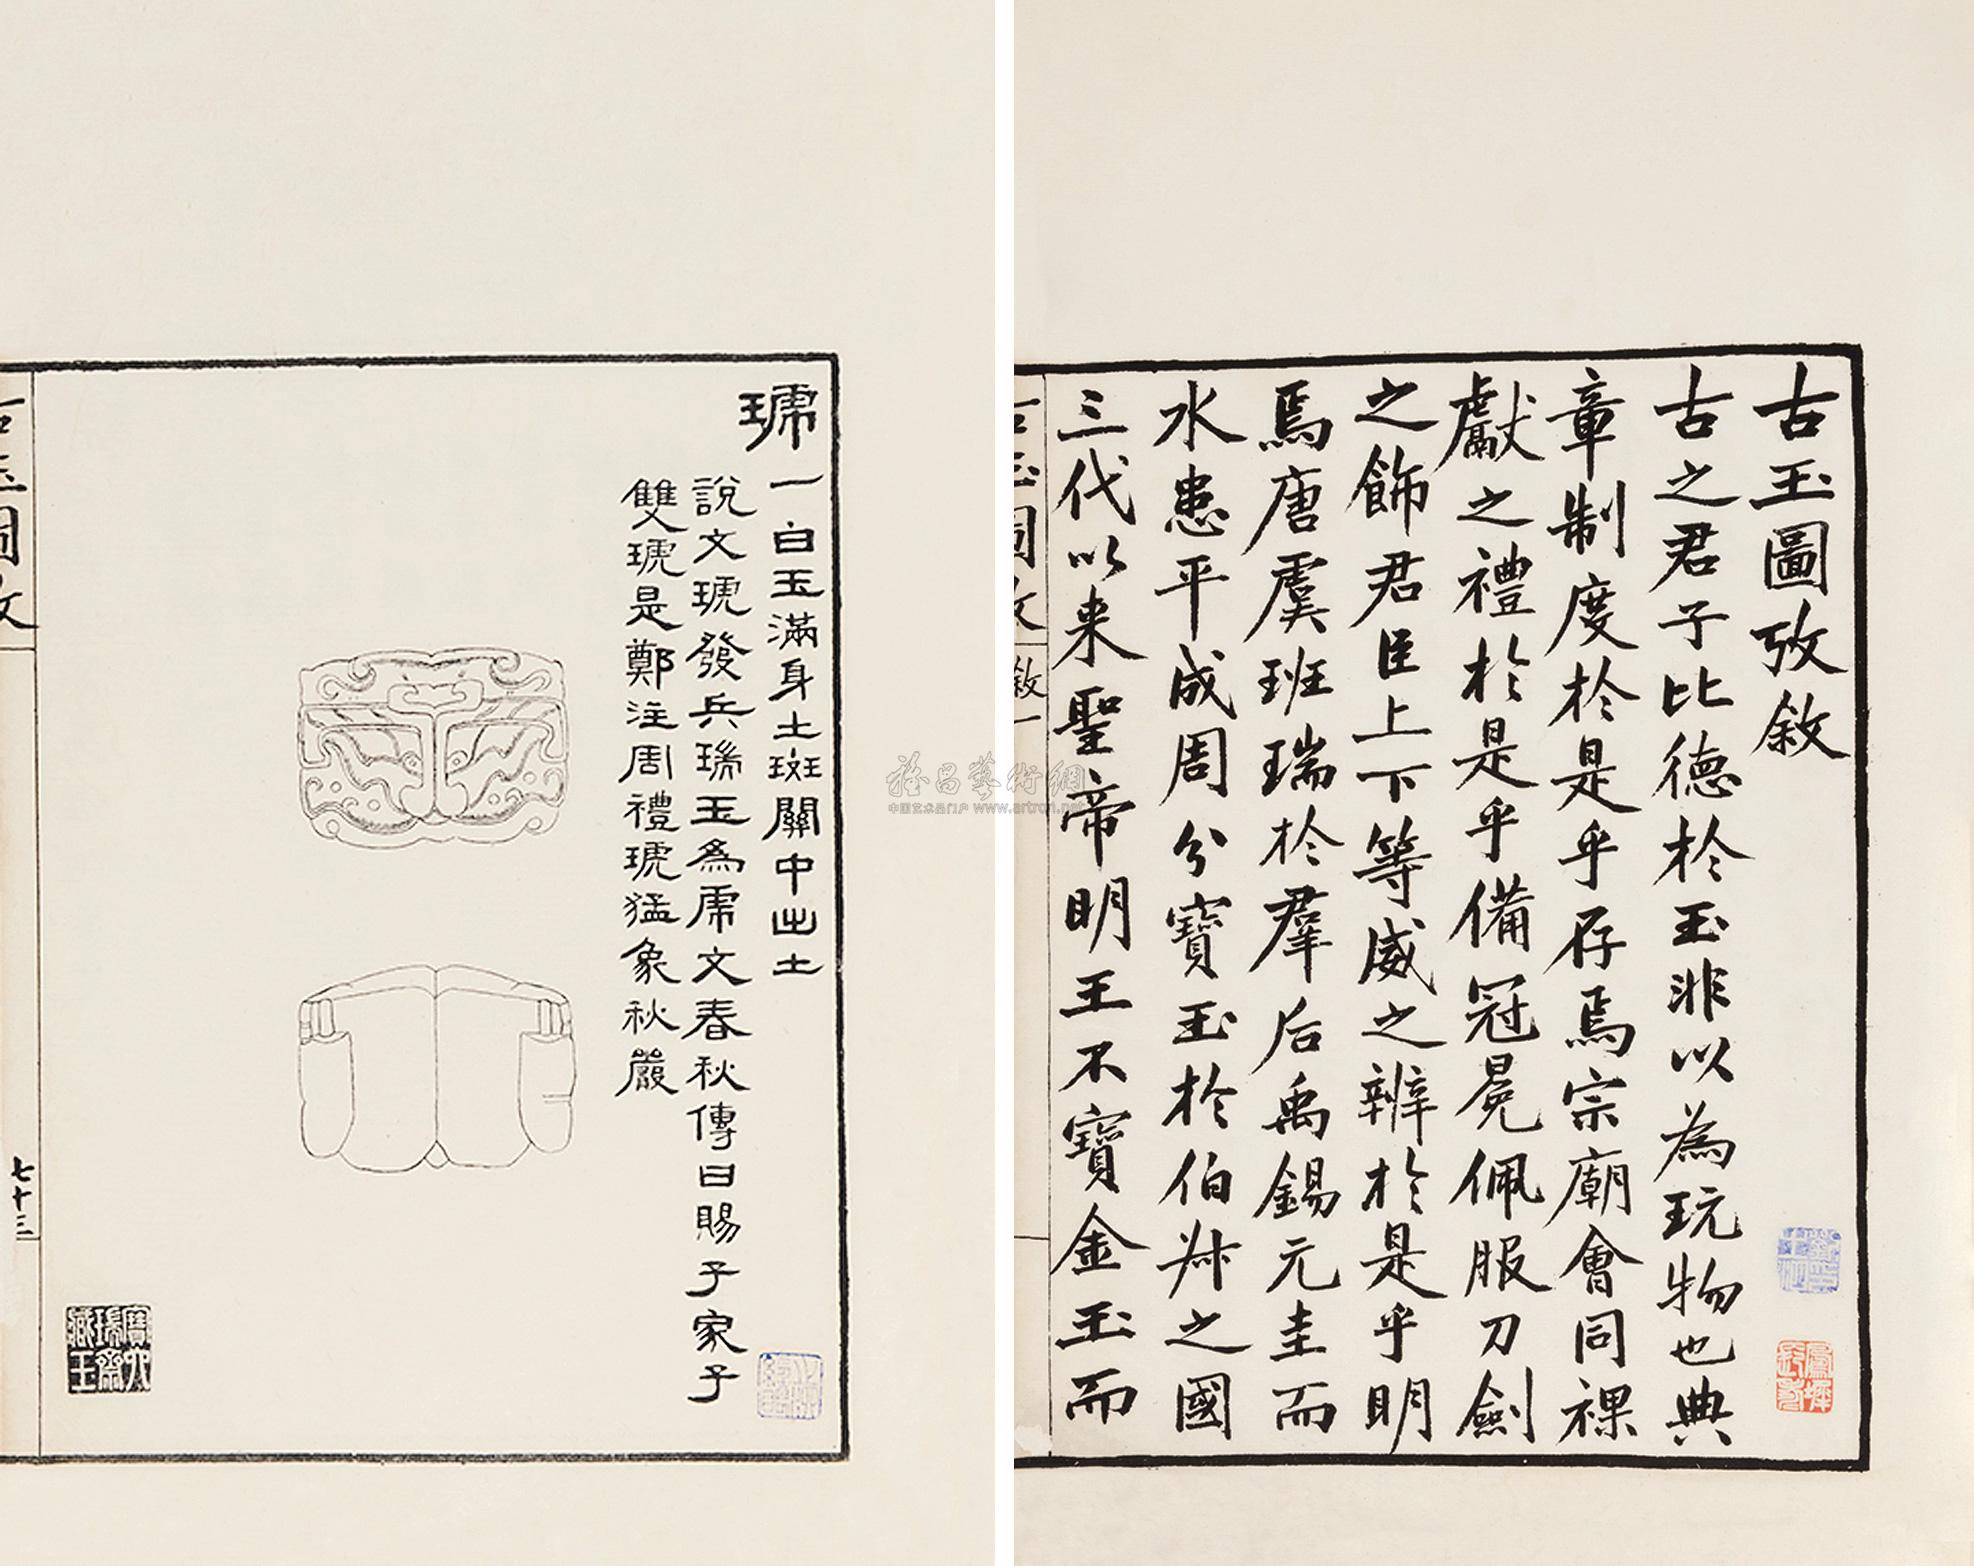 古玉圖攷敘
古之君子比德於玉非以為玩物也典
章制度於是乎存焉宗廟會同祼
獻之禮於是乎備冠冕佩服刀劍
之飾君臣上下等威之辨於是乎明
焉唐虞班瑞於羣后禹錫元圭而
水患平成周分寶玉於伯叔之國
三代以来聖帝明王不寶金玉而
敘一
琥一白玉滿身土斑關中出土
說文琥發兵瑞玉為虎文春秋傳曰賜子家子
雙琥是鄭注周禮琥猛象秋嚴
古玉圖攷
七十三
寶六瑞齋藏玉
中国艺术品门户 www.artron.net